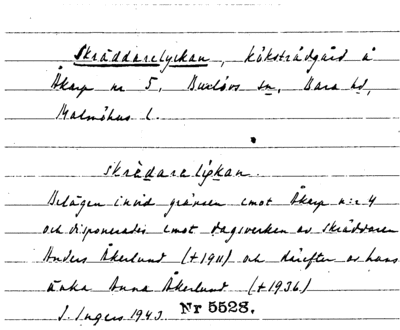 Skräddarelyckan, köksträdgård å
Åkarp nr 5, Burlövs sn, Bara hd,
Malmöhus l.
skrädarelykan.
Belägen invid gränsen emot Åkarp n:r 4
och disponerades emot dagsverken av skräddaren
Anders Åkerlund (+1911) och därefter av hans
änka Anna Åkerlund (+1936)
I. Ingers 1943. Nr 5528.